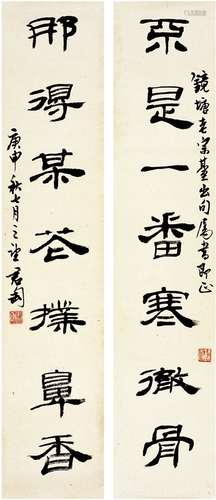 不是一番寒徹骨
鏡塘老棣臺出句屬書即正
那得某花撲鼻香
庚申秋七月之望君匋